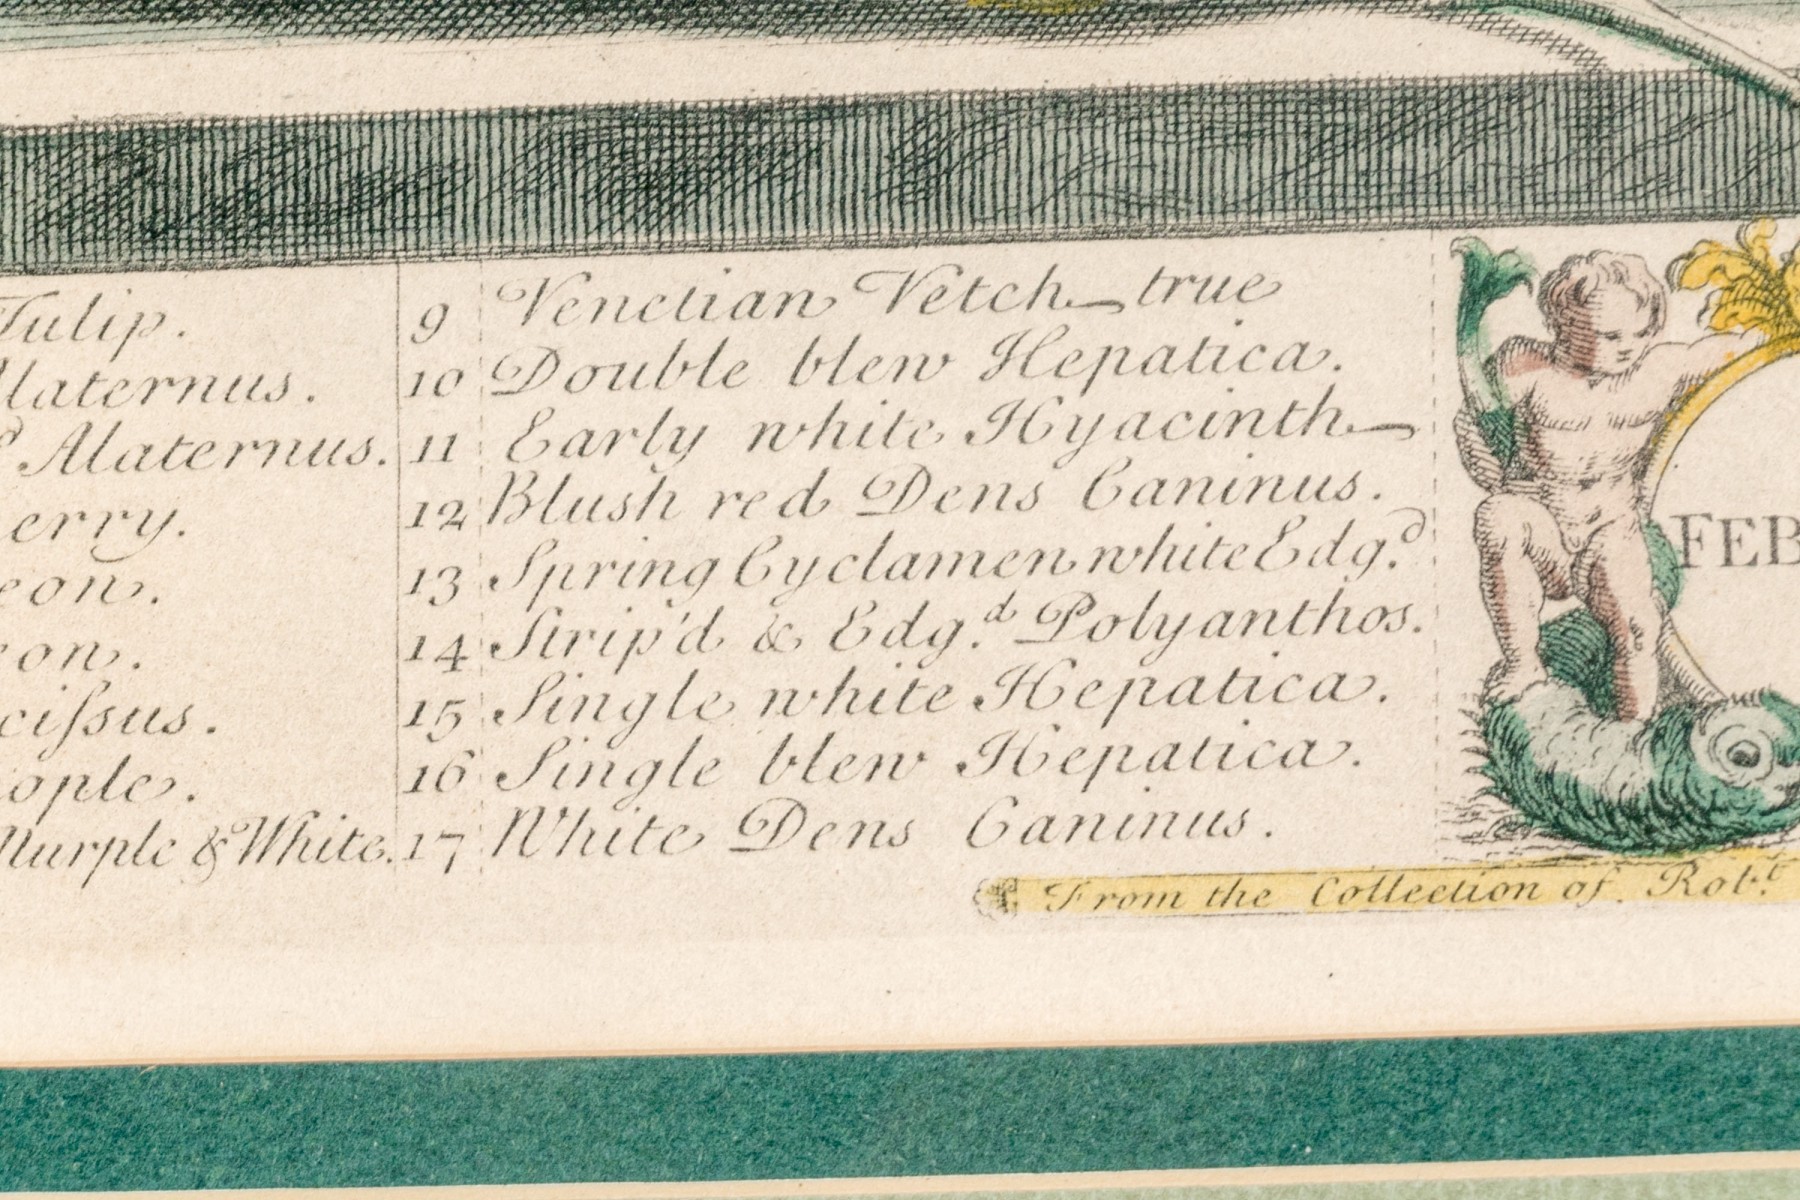 Tulip.
Alaternus.
d Alaternus.
erry.
eon.
eon.
cifsus.
ople.
Purple & White.
9 Venetian Vetch true
10 Double blew Hepatica.
11 Early white Hyacinth
12 Blush red Dens Caninus.
13 Spring Cyclamen white Edg.d
14 Strip'd & Edg.d Polyanthos.
15 Single white Hepatica.
16 Single blew Hepatica.
17 White Dens Caninus.
FEB
From the Collection of Rob.t